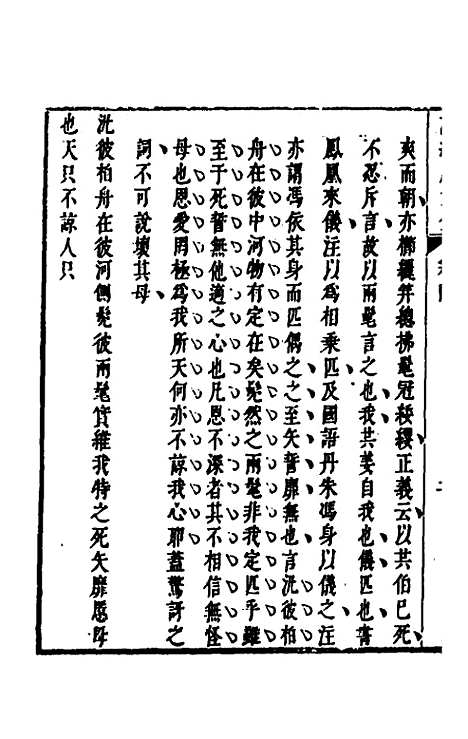 爽而朝亦櫛纚笄總拂髦冠緌纓正義云以其伯已死
不忍斥言故以兩髦言之也我共姜自我也儀匹也書
鳳凰來儀注以爲相乘匹及國語丹朱馮身以儀之注
亦謂馮依其身而匹偶之之至矢誓靡無也言汎彼柏
舟在彼中河物有定在矣髧然之兩髦非我定匹乎雖
至于死誓無他適之心也凡恩不深者其不相信無怪
母也恩愛罔極爲我所天何亦不諒我心耶蓋驚訝之
詞不可說壞其母
汎彼柏舟在彼河側髧彼兩髦實維我特之死矢靡慝母
也天只不諒人只